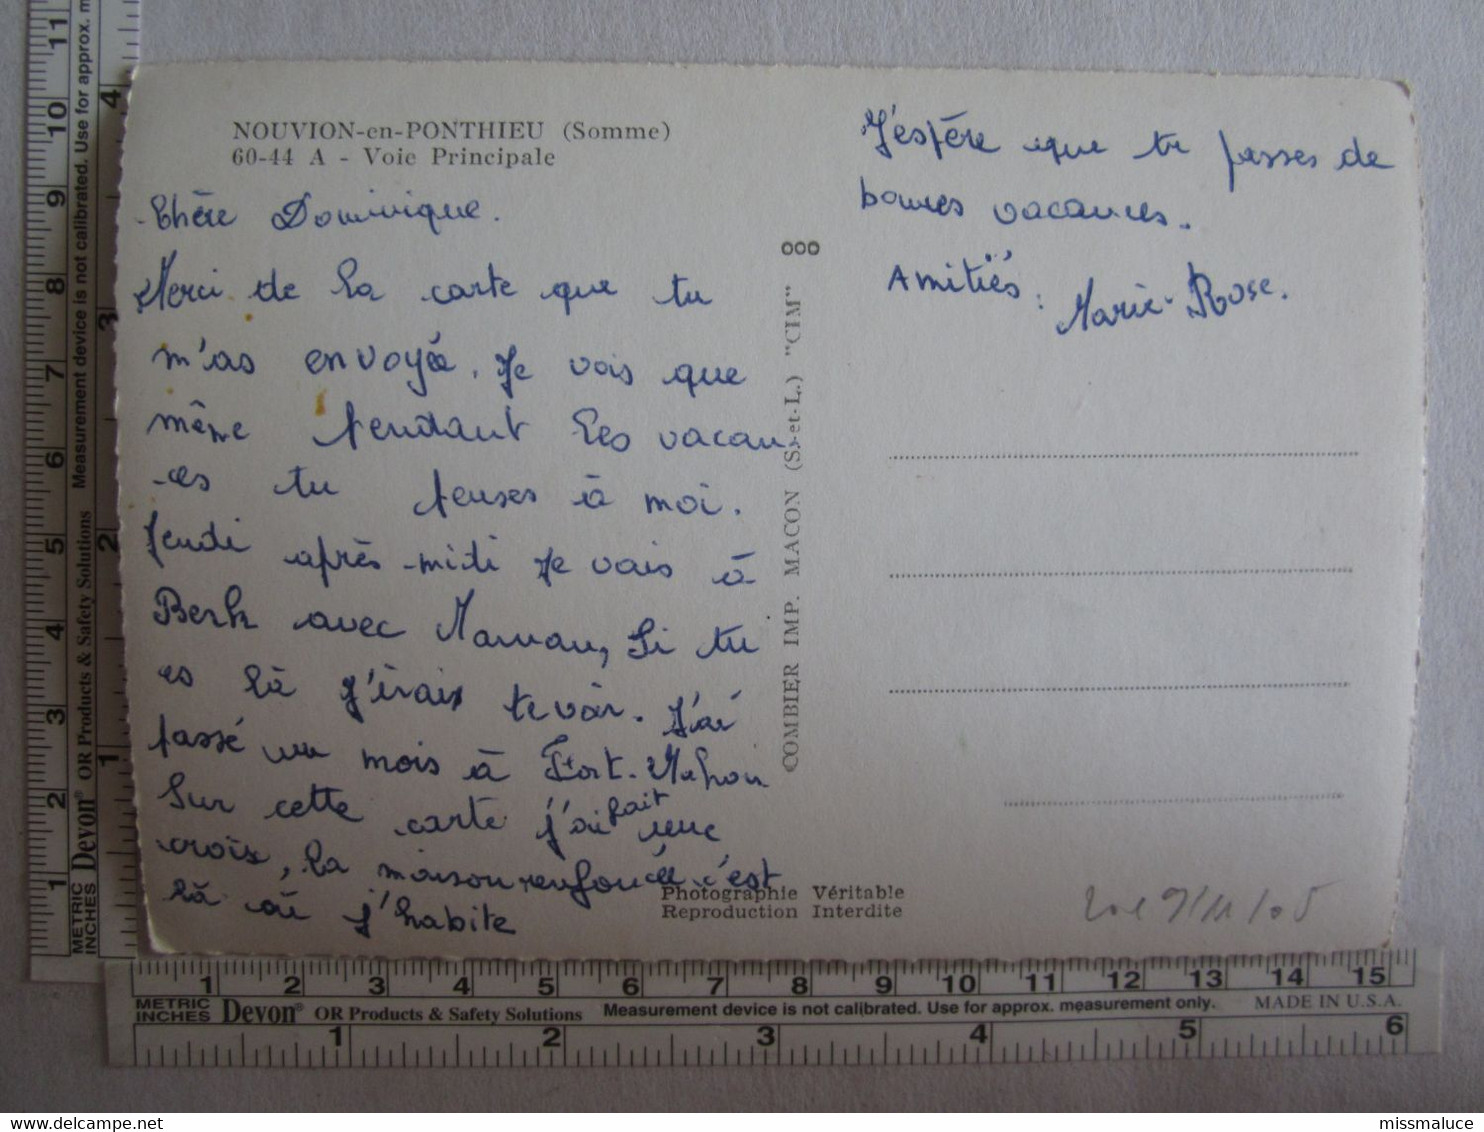 NOUVION-en-PONTHIEU (Somme)
60-44 A - Voie Principale
Chère Dominique.
Merci de la carte que tu
m'as envoyée. Je vois que
même pendant les vacan-
ces tu penses à moi.
Jeudi après-midi je vais à
Berk avec Maman, Si tu
es là j'irais te voir. J'ai
passé un mois à Fort-Mahon
Sur cette carte j'ai fait une
croix, la maison renfoncée c'est
là où j'habite
J'espère que tu passes de
bonnes vacances.
Amitiés : Marie-Rose.
COMBIER IMP. MACON (S.-et-L.) "CIM"
Photographie Véritable
Reproduction Interdite
9/11/05
METRIC
INCHES
Devon® OR Products & Safety Solutions
Measurement device is not calibrated. Use for approx. measurement only.
MADE IN U.S.A.
1 2 3 4 5 6 7 8 9 10 11 12 13 14 15
1 2 3 4 5 6
METRIC
INCHES
Devon® OR Products & Safety Solutions
Measurement device is not calibrated. Use for approx. m
1 2 3 4 5 6 7 8 9 10 11
1 2 3 4
missmaluce